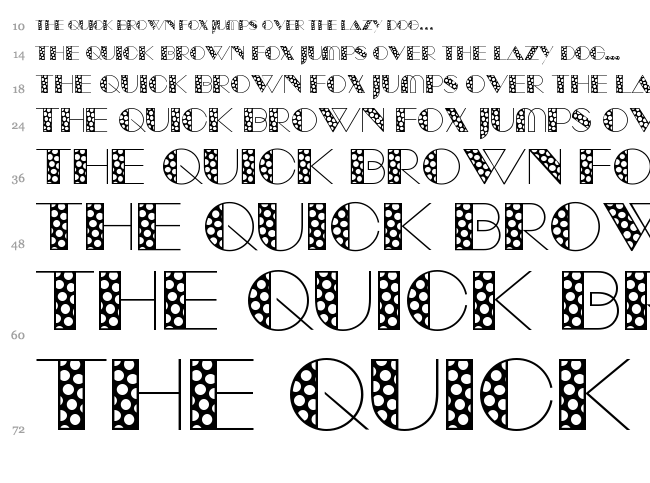 10 THE QUICK BROWN FOX JUMPS OVER THE LAZY DOG...
14 THE QUICK BROWN FOX JUMPS OVER THE LAZY DOG...
18 THE QUICK BROWN FOX JUMPS OVER THE LA
24 THE QUICK BROWN FOX JUMPS OV
36 THE QUICK BROWN FO
48 THE QUICK BROW
60 THE QUICK BR
72 THE QUICK